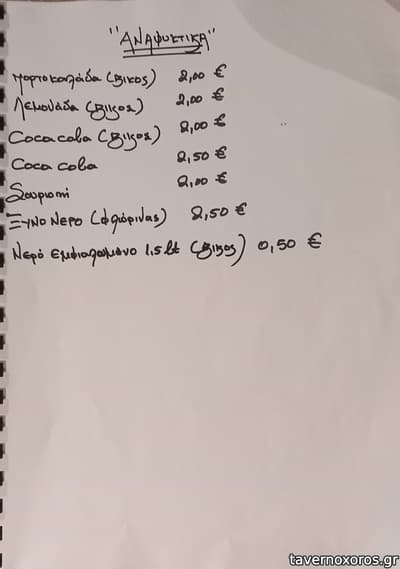 "ΑΝΑΨΥΚΤΙΚΑ"
Πορτοκαλάδα (Βικος) 2,00 €
Λεμονάδα (Βικος) 2,00 €
Coca cola (Βικος) 2,00 €
Coca cola 2,50 €
Σουρωτή 2,00 €
Ξυνο Νερο (Φλώρινας) 2,50 €
Νερό εμφιαλωμένο 1,5 lt (Βικος) 0,50 €
tavernoxoros.gr